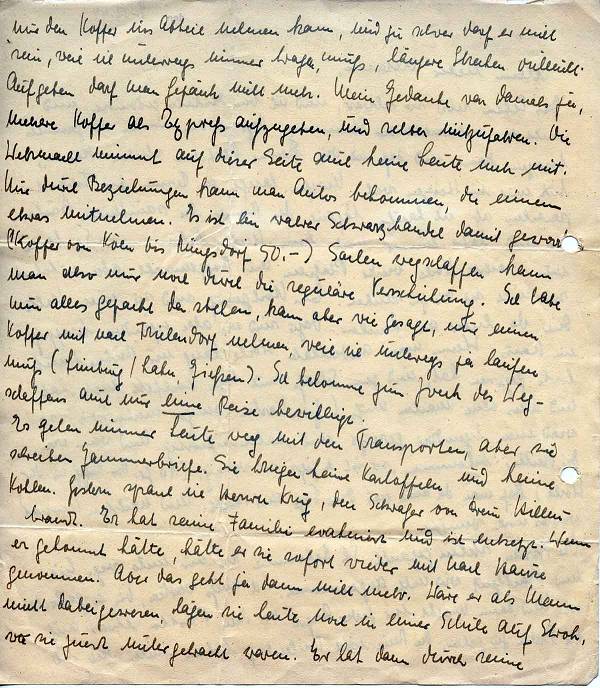 nur den Koffer ins Abteil nehmen kann, und zu schwer darf er nicht
sein, weil ich unterwegs immer tragen muß, längere Strecken vielleicht.
Aufgeben darf man Gepäck nicht mehr. Mein Gedanke von damals ja,
mehrere Koffer als Expreß aufzugeben, und selber mitzufahren. Die
Wehrmacht nimmt auf dieser Seite auch keine Leute mehr mit.
Nur durch Beziehungen kann man Autos bekommen, die einem
etwas mitnehmen. Es ist ein wahrer Schwarzhandel damit geword
(Koffer von Köln bis Ründsdorf 50.-) Sachen wegschaffen kann
man also nur noch durch die reguläre Verschickung. Ich habe
nun alles gepackt da stehen, kann aber wie gesagt, nur einen
Koffer mit nach Frielendorf nehmen, weil ich unterwegs ja laufen
muß (Limburg/Lahn, Gießen). Ich bekomme zum Zweck des Weg-
schaffens auch nur eine Reise bewilligt.
Es gehen immer Leute weg mit den Transporten, aber sie
schreiben Jammerbriefe. Sie kriegen keine Kartoffeln und keine
Kohlen. Gestern sprach ich Herrn Krug, den Schwager von
brandt. Er hat seine Familie evakuiert und ist entsetzt. Wenn
er gekonnt hätte, hätte er sie sofort wieder mit nach Hause
genommen. Aber das geht ja dann nicht mehr. Wäre er als Mann
nicht dabeigewesen, lägen sie heute noch in einer Schule auf Stroh,
wo sie zuerst untergebracht waren. Er hat dann durch seine